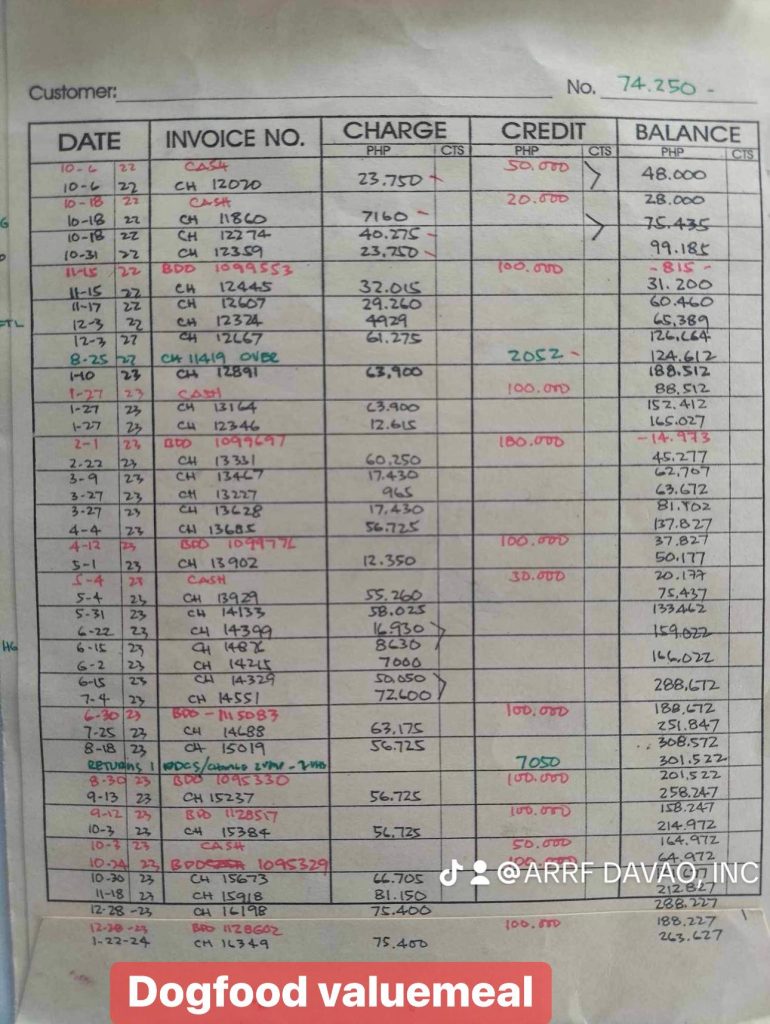 Customer: No. 74.250 -
DATE INVOICE NO. CHARGE CREDIT BALANCE
PHP CTS PHP CTS PHP CTS
10-6 22 CASH 50.000
10-6 22 CH 12020 23.750 - 48.000
10-18 22 CASH 20.000 28.000
10-18 22 CH 11860 7160 -
10-18 22 CH 12274 40.275 - 75.435
10-31 22 CH 12359 23,750 - 99.185
11-15 22 BDO 1099553 100.000 -815-
11-15 22 CH 12445 32.015 31.200
11-17 22 CH 12607 29.260 60.460
12-3 22 CH 12324 4929 65,389
12-3 22 CH 12667 61.275 126,664
8-25 22 CH 11419 OVER 2052 - 124.612
1-10 23 CH 12891 63,900 188.512
1-27 23 CASH 100.000 88,512
1-27 23 CH 13164 63.900 152.412
1-27 23 CH 12346 12.615 165.027
2-1 23 BDO 1099697 180.000 -14.973
2-22 23 CH 13331 60,250 45.277
3-9 23 CH 13467 17.430 62,707
3-27 23 CH 13227 965 63.672
3-27 23 CH 13628 17,430 81.102
4-4 23 CH 13685 56.725 137.827
4-12 23 BDO 1099776 100.000 37.827
5-1 23 CH 13902 12.350 50.177
5-4 23 CASH 30.000 20.177
5-4 23 CH 13929 55.260 75,437
5-31 23 CH 14133 58.025 133462
6-22 23 CH 14399 16.930
6-15 23 CH 14826 8630 159.022
6-2 23 CH 14215 7000 166,022
6-15 23 CH 14329 50,050
7-4 23 CH 14551 72.600 288,672
6-30 23 BDO - 1115083 100.000 188,672
7-25 23 CH 14688 63,175 251.847
8-18 23 CH 15019 56.725 308.572
RETURNS 1 7050 301.522
8-30 23 BDO 1095330 100.000 201,522
9-13 23 CH 15237 56.725 258.247
9-12 23 BDO 1128517 100.000 158.247
10-3 23 CH 15384 56,725 214.972
10-3 23 CASH 50.000 164.972
10-24 23 BDO 1095329 100.000 64.972
10-30 23 CH 15673 66.705
11-18 23 CH 15918 81.150 212.827
12-28-23 CH 16198 75.400 288.227
12-28-23 BDO 1128602 100.000 188.227
1-22-24 CH 16349 75.400 263.627
@ARRF DAVAO, INC
Dogfood valuemeal